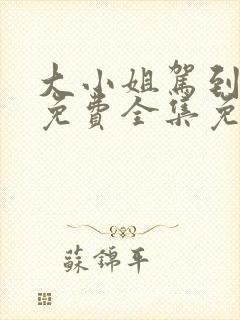 大小姐駕到
免費全集免
蘇錦年